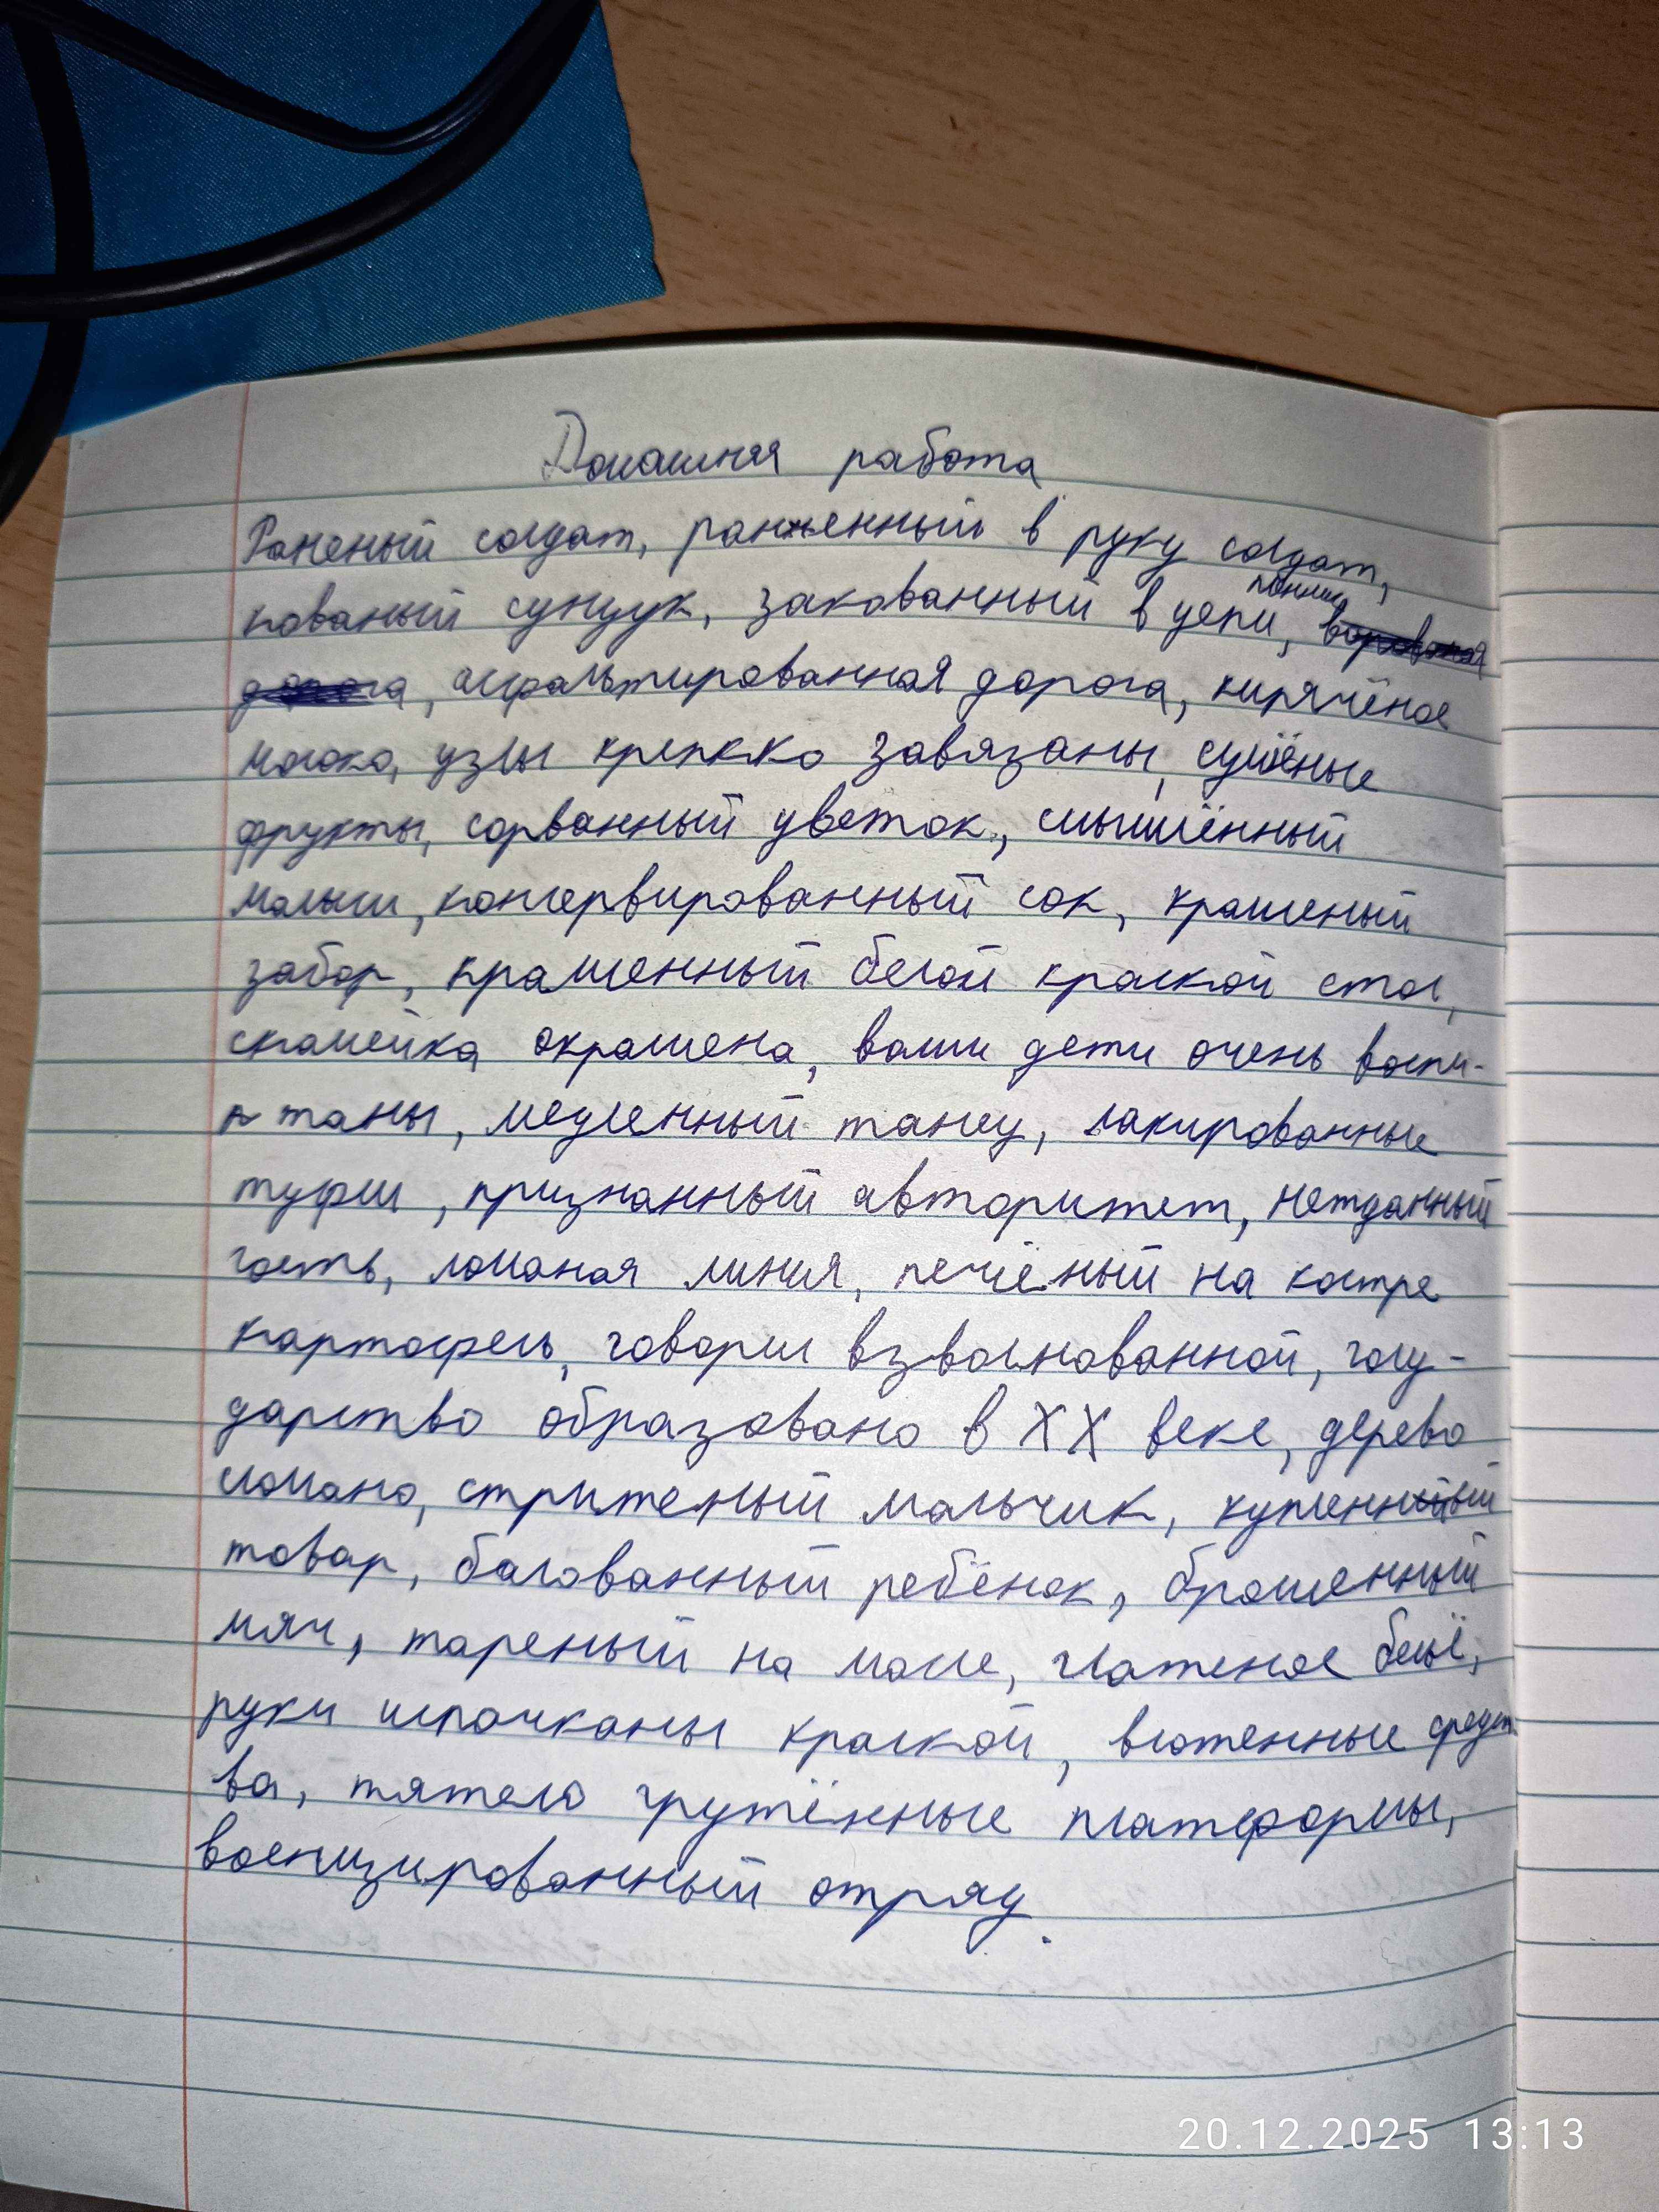 Домашняя работа
Раненый солдат, раненный в руку солдат,
кованый сундук, закованный в цепи,
асфальтированная дорога, кирячёное
молоко, узлы крепкко завязаны, сушёные
фрукты, сорванный цветок, смышлённый
малыш, консервированный сок, крашеный
забор, крашенный белой краской стол,
скамейка окрашена, ваши дети очень воспи-
таны, медленный танец, лакированные
туфли, признанный авторитет, нежданный
гость, ломаная линия, печёный на костре
картофель, говорил взволнованной, госу-
дарство образовано в XX веке, дерево
сломано, стриженый мальчик, купленный
товар, балованный ребёнок, брошенный
мяч, жареный на масле, глаженое бельё,
руки испачканы краской, вложенные средст
ва, тяжело гружённые платформы,
военизированный отряд.
20.12.2025 13:13